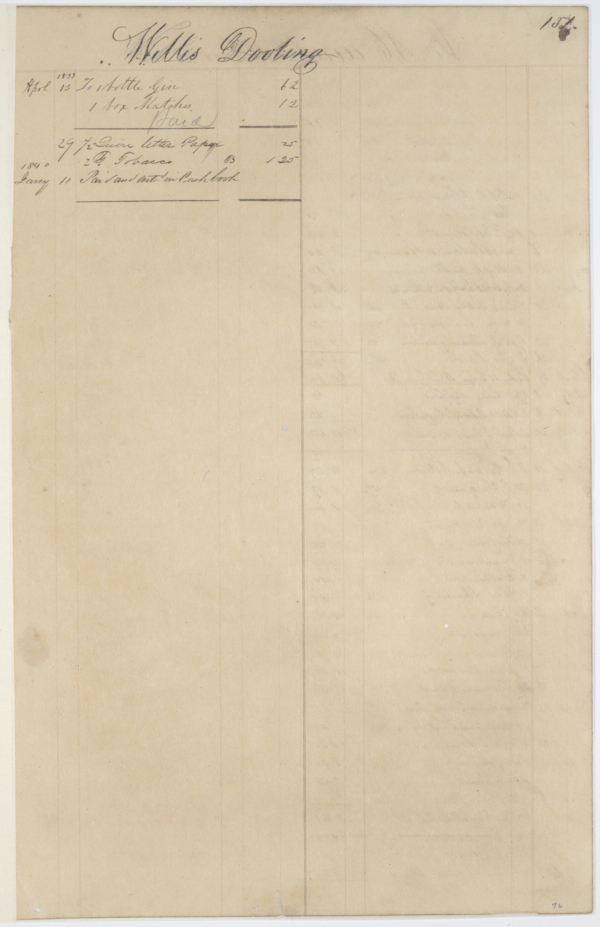 151.
Willis Dooling
1839
Apol 15 To 1 bottle Gin 62
1 Box Matches 12
Paid
29 1/2 Quire letter Paper 25
2 ℔ Tobacco 1 25
1840
11 Paid and ent'd in Cash book
76